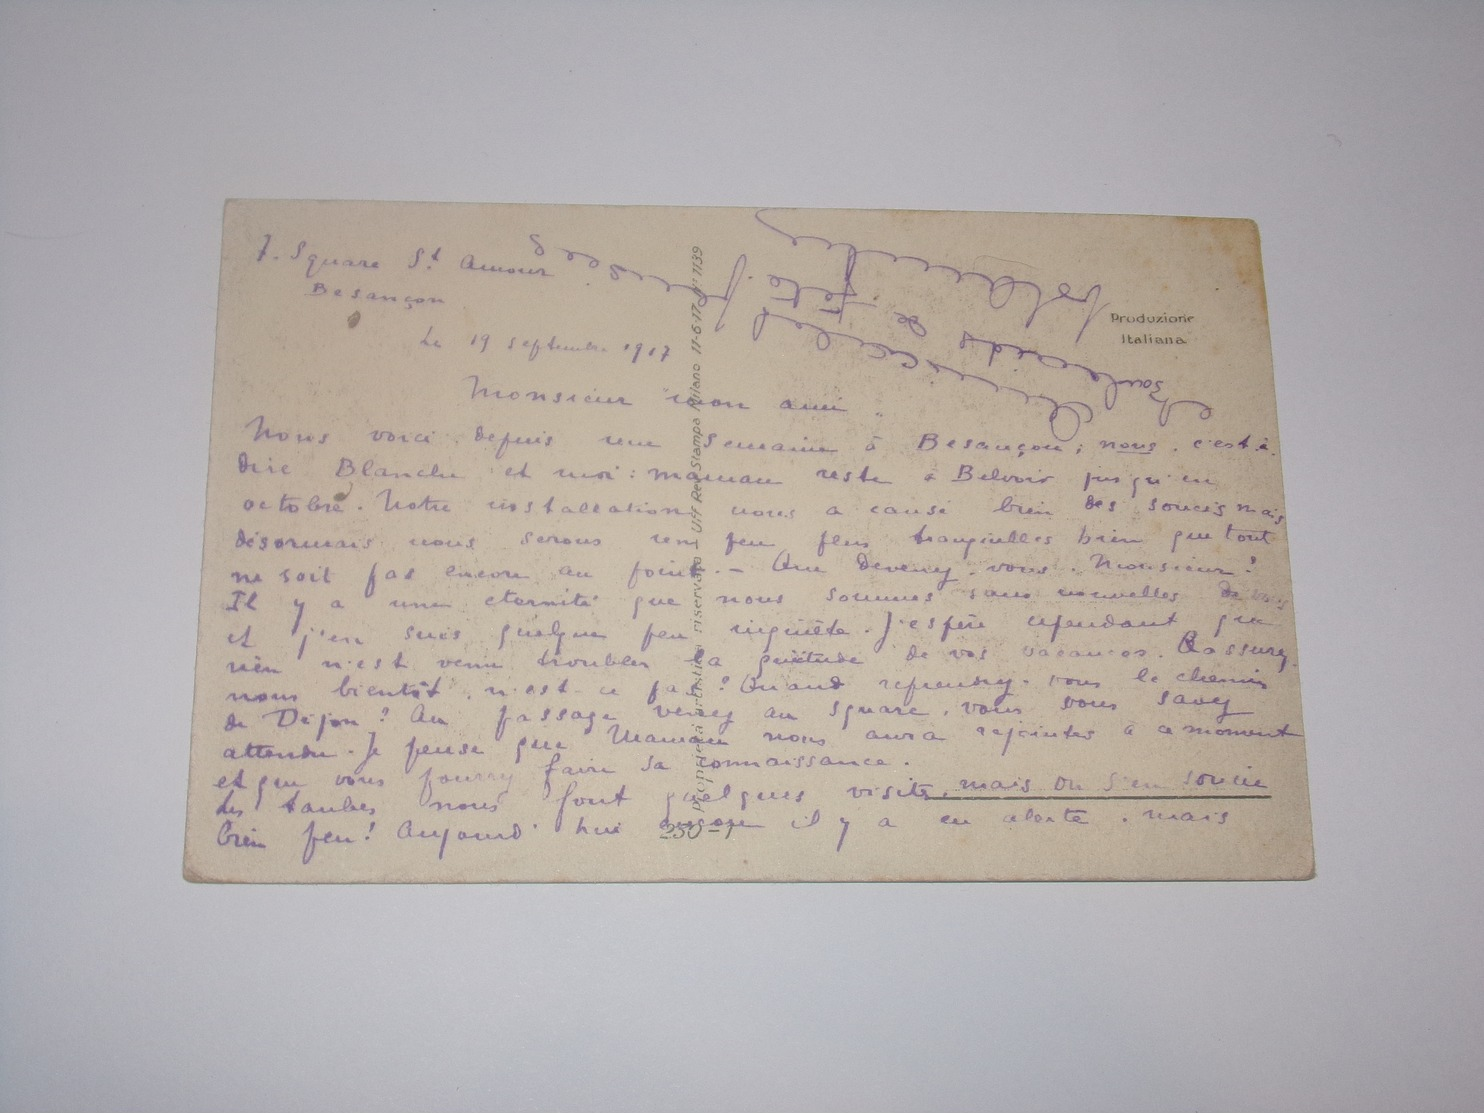 7. Square St Amour
Besançon
Le 19 septembre 1917
Monsieur mon ami
Nous voici depuis une semaine à Besançon ; nous, c'est à
dire Blanche et moi : maman reste à Belvoir jusqu'en
octobre. Notre installation nous a causé bien des soucis mais
désormais nous serons un peu plus tranquilles bien que tout
ne soit pas encore au point. - Que devenez-vous, Monsieur ?
Il y a une eternité que nous sommes sans nouvelles de vous
et j'en suis quelque peu inquiète. J'espère cependant que
rien n'est venu troubler la quiétude de vos vacances. Rassurez-
nous bientôt, n'est-ce pas ? Quand reprendrez-vous le chemin
de Dijon ? Au passage venez au square, vous vous savez
attendu. Je pense que Maman nous aura rejointes à ce moment
et que vous pourrez faire sa connaissance.
Les taubes nous font quelques visites, mais on s'en soucie
bien peu ! Aujourd'hui encore il y a eu alerte, mais
Produzione
Italiana
Proprietà artistica riservata - Uff. Rev. Stampa Milano 11-6-17 n° 1139
230-1